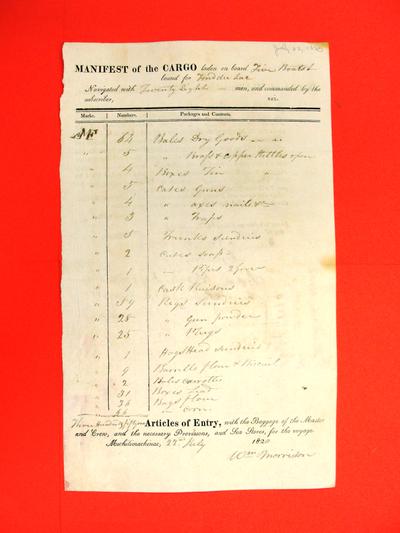 MANIFEST of the CARGO laden on board Five Boats
bound for
Navigated with Twenty Eight men, and commanded by the
subscriber, viz.
Marks. Numbers. Packages and Contents.
64 Bales Dry Goods
" 5 " Brass & Copper Kettles open
" 4 Boxes Tin "
" 5 Cases Guns
" 4 " axes nails &c
" 3 " Traps
" 3 Trunks Sundries
" 2 Cases soap
" 1 "
" 1 Cask Raisons
" 59 Kegs Sundries
" 28 " Gun powder
" 25 "
" 1 HogsHead Sundries
" 9 Barrells flour & Biscuit
" 2 Bales
" 31 Boxes
" 36 Bags flour
" " corn
Three Hundred Articles of Entry, with the Baggage of the Master
and Crew, and the necessary Provisions, and Sea Stores, for the voyage
Michilimackinac, 22nd July 1820
Wm Morrison